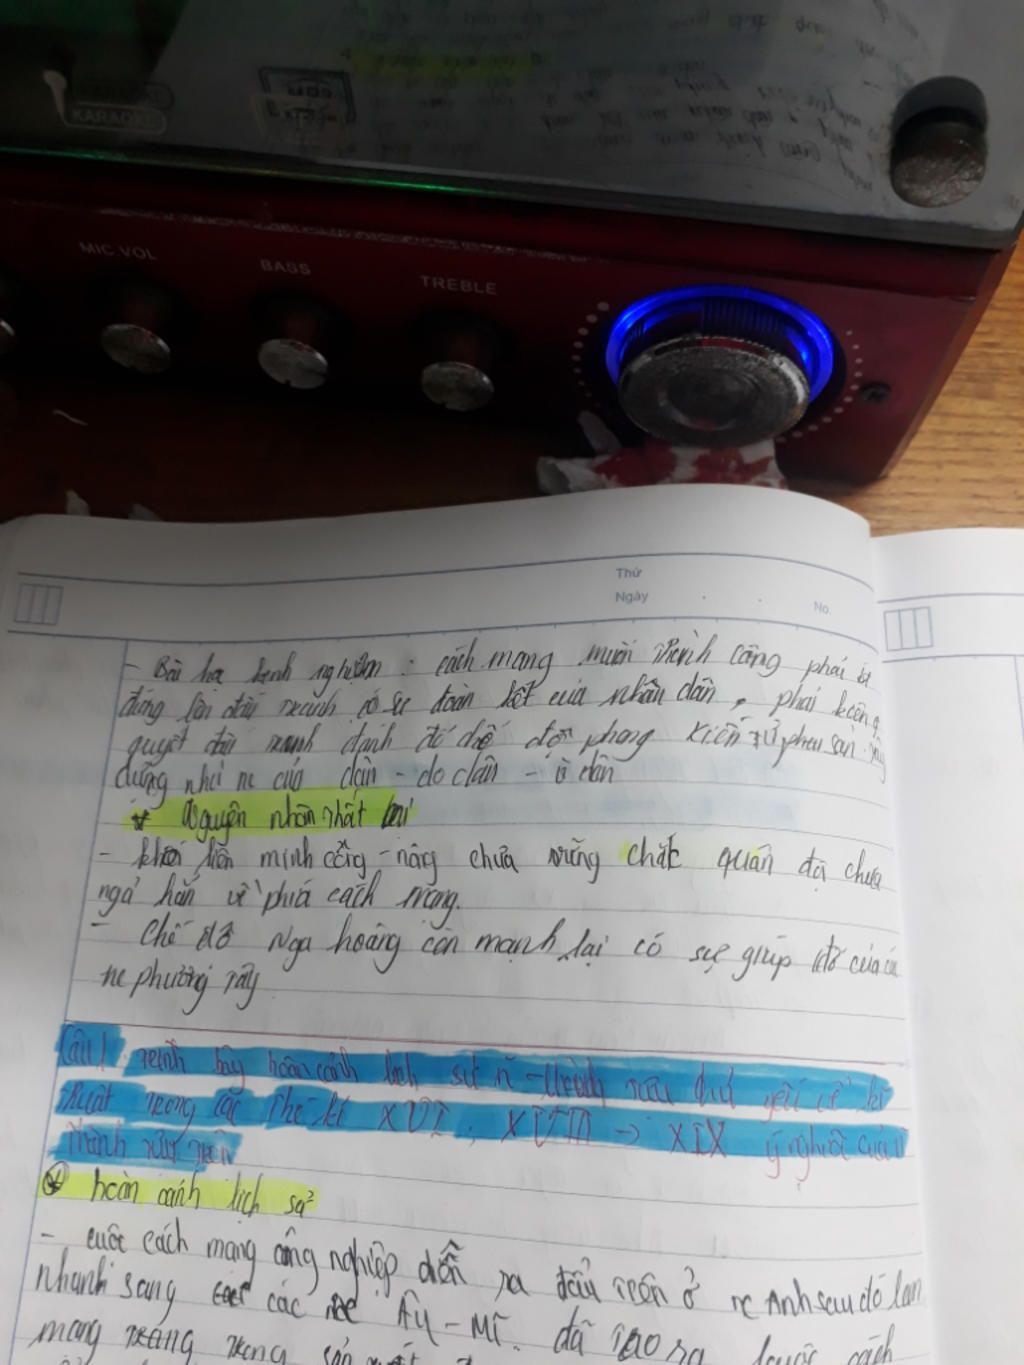 KARAOKE
MIC.VOL
BASS
TREBLE
Thứ
Ngày
No.
- Bài học kinh nghiệm : cách mạng muốn thành công phải
đứng lên đấu tranh có sự đoàn kết của nhân dân, phải kiên
quyết đấu tranh đánh đổ chế độ phong kiến tư sản
dựng nhà nc của dân - do dân - vì dân
* Nguyên nhân thất bại
- khối liên minh công - nông chưa vững chắc quân đội chưa
ngả hẳn về phía cách mạng.
- Chế độ Nga hoàng còn mạnh lại có sự giúp đỡ của các
nc phương Tây
Câu 1: trình bày hoàn cảnh lịch sử
thuật trong các thế kỉ XVIII -> XIX ý nghĩa của
thành tựu trên
* hoàn cảnh lịch sử
- cuộc cách mạng công nghiệp diễn ra đầu tiên ở nc Anh sau đó lan
nhanh sang các nc Âu - Mĩ. đã tạo ra bước cách
mạng trong sản xuất